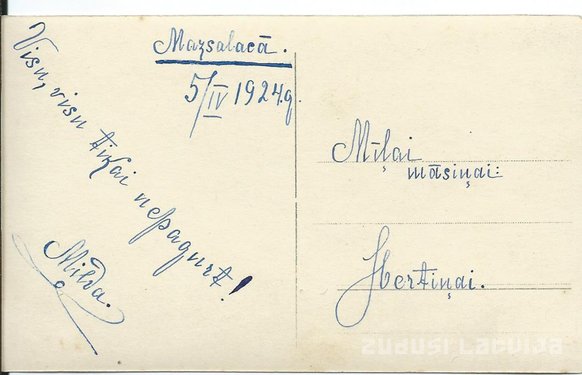 Mazsalacā.
5/IV 1924g.
Visu, visu tikai nepagurt!
Milda.
Mīļai
māsiņai:
Hertiņai.
Zudusi Latvija